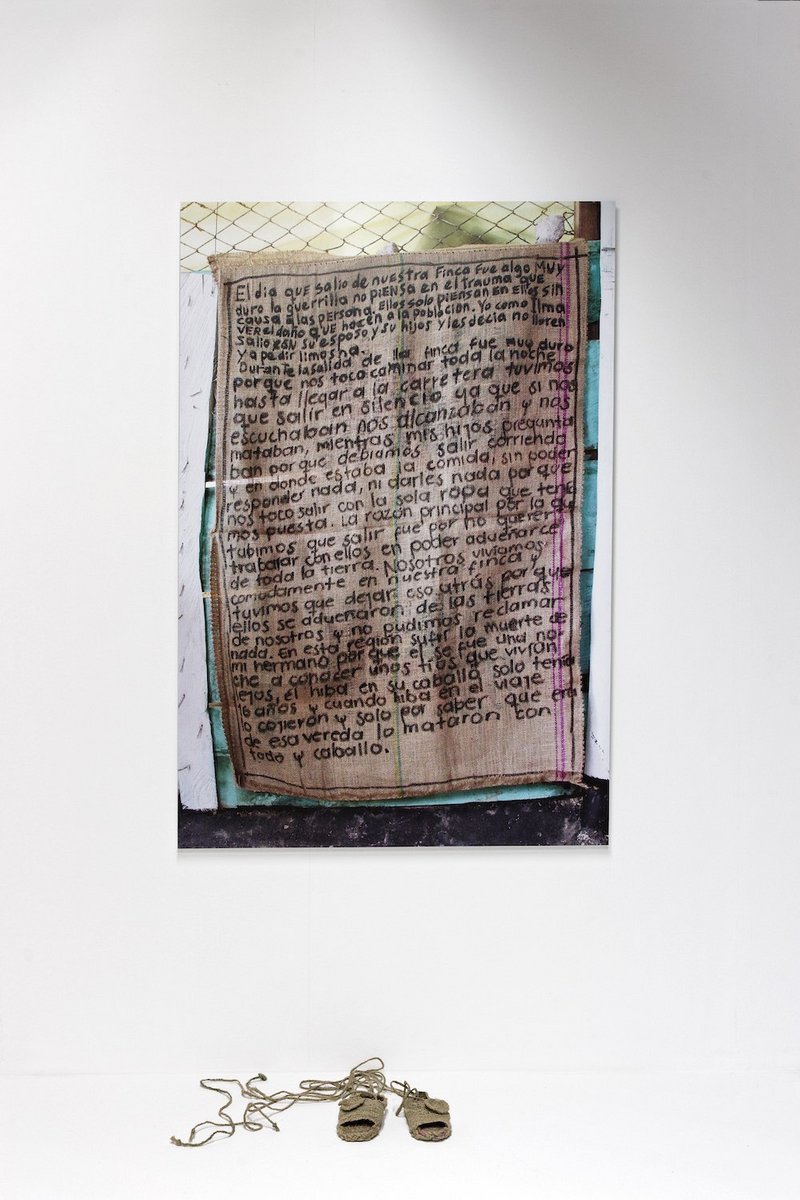 El dia que salio de nuestra Finca fue algo muy
duro la guerrilla no piensa en el trauma que
causa a las persona. Ellos solo piensan en Ellos sin
ver el daño que hacen a la poblacion. Yo como Ilma
salio con su esposo y su hijos y les decia no lloren
y a pedir limosna.
Durante la salida de la finca fue muy duro
porque nos toco caminar toda la noche
hasta llegar a la carretera tuvimos
que salir en silencio ya que si nos
escuchaban nos alcanzaban y nos
mataban, mientras mis hijos pregunta
ban porque debiamos salir corriendo
y en donde estaba la comida, sin poder
responder nada, ni darles nada porque
nos toco salir con la sola ropa que tenia
mos puesta. La razon principal por la que
tubimos que salir fue por no querer
trabajar con ellos en poder adueñarce
de toda la tierra. Nosotros viviamos
comodamente en nuestra finca y
tuvimos que dejar eso atras porque
ellos se adueñaron de las tierras
de nosotros y no pudimos reclamar
nada. En esta región sufri la muerte de
mi hermano porque el se fue una no-
che a conocer unos tios que vivian
lejos, el hiba en su caballo solo tenia
16 años y cuando hiba en el viaje
lo cojieron y solo por saber que era
de esa vereda lo mataron con
todo y caballo.